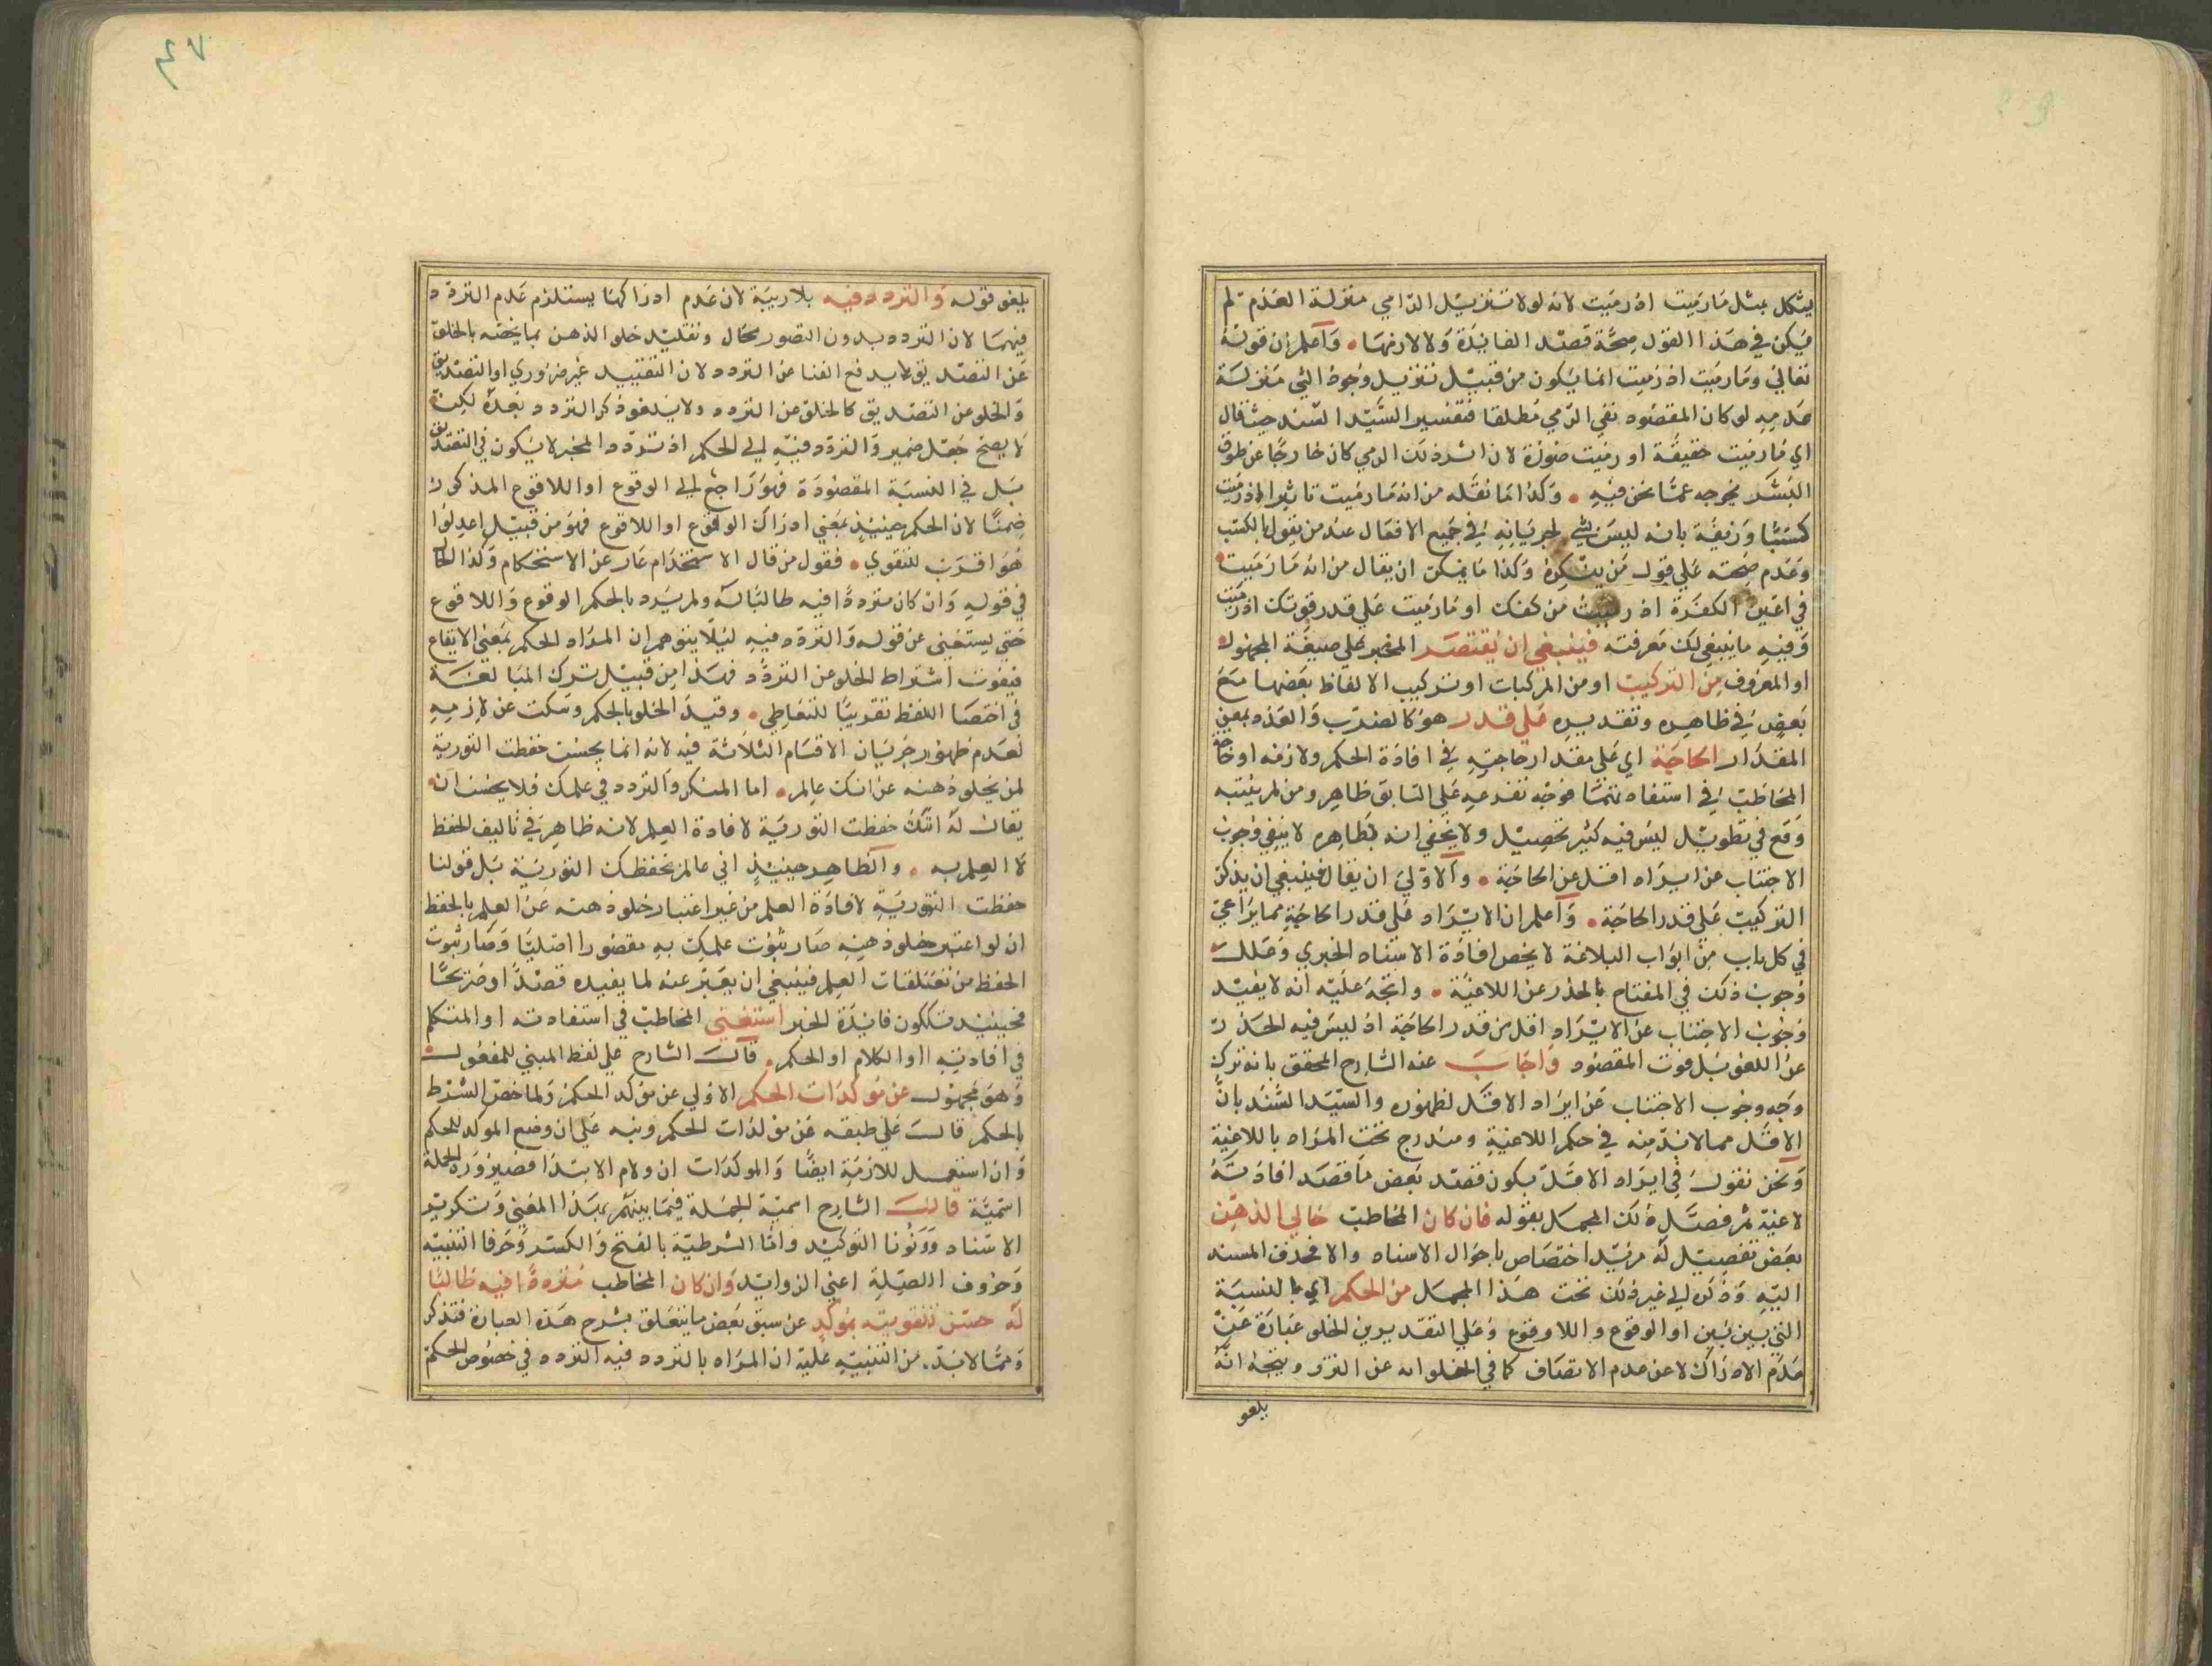 يشكل بمثل مارميت اذ رميت لانه لولا تنزيل الرامي منزلة العدم لم
يكن في هذا القول صحة قصد الفايدة ولا لازمها واعلم ان قوله
تعالى ومارميت اذ رميت انما يكون من قبيل تنزيل وجود الشي منزلة
عدمه لو كان المقصود نفي الرمي مطلقا فتفسير السيد السند حيث قال
اي مارميت حقيقة اذ رميت صورة لان اثر ذلك الرمي كان خارجا عن طوق
البشر يخرجه عما نحن فيه وكذا ما نقله من انه مارميت تاثيرا اذ رميت
كسبا وزيفه بانه ليس بشي لجريانه في جميع الافعال عند من يقول بالكسب
وعدم صحته على قول من ينكره وكذا ما يمكن ان يقال من انه مارميت
في اعين الكفرة اذ رميت من كفك او مارميت على قدر قوتك اذ رميت
وفيه ما ينبغي لك معرفته فينبغي ان يقتصر المخبر على صيغة المجهول
او المعروف من التركيب او من المركبات او تركيب الالفاظ بعضها مع
بعض في ظاهره وتقديره على قدر هو كالضرب والعده بمعني
المقدار الحاجة اي على مقدار حاجته في افادة الحكم ولازمه او حاجة
المخاطب في استفادتهما فوجه تفرعه على السابق ظاهر ومن لم ينتبه
وقع في تطويل ليس فيه كثير تحصيل ولا يخفي انه بظاهره لا ينبغي وجوب
الاجتناب عن ايراد اقل عن الحاجة والاولى ان يقال فينبغي ان يذكر
التركيب على قدر الحاجة واعلم ان الايراد على قدر الحاجة مما يراعي
في كل باب من ابواب البلاغة لا يخص افادة الاسناد الخبري وعلل
وجوب ذلك في المفتاح بالحذر عن اللاغية واتجه عليه انه لا يفيد
وجوب الاجتناب عن الايراد اقل من قدر الحاجة اذ ليس فيه الحذر
عن اللغو بل فوت المقصود واجاب عنه الشارح المحقق بانه ترك
وجه وجوب الاجتناب عن ايراد الاقل لظهوره والسيد السند بان
الاقل مما لابد منه في حكم اللاغية ومندرج تحت المراد باللاغية
ونحن نقول في ايراد الاقل يكون قصد بعض ما قصد افادته
لاغية ثم فصل ذلك المجمل بقوله فان كان المخاطب خالي الذهن
بعض تفصيل له مزيد اختصاص باحوال الاسناد والا فحذف المسند
اليه وذكره الى غير ذلك تحت هذا المجمل من الحكم اي بالنسبة
التي بين بين او الوقوع واللا وقوع وعلى التقديرين الخلو عبارة عن
عدم الادراك لا عن عدم الاتصاف كما في الخلو انه عن التردد ويتجه انه
يلغو
٤٧
يلغو قوله والتردد فيه بلا ريبة لان عدم ادراكهما يستلزم عدم التردد
فيهما لان التردد بدون التصور محال وتقليد خلو الذهن بما يخصه بالخلو
عن التصديق لا يدفع الغنا عن التردد لان التقييد غير ضروري او التصديق
والخلو عن التصديق كالخلو عن التردد ولا يلغو ذكر التردد بعده لكن
لا يصح جعل ضمير والتردد فيه الى الحكم اذ تردد المخبر لا يكون في التصديق
بل في النسبة المقصودة فهو راجع الى الوقوع او اللاوقوع المذكور
ضمنا لان الحكم حينيذ بمعني ادراك الوقوع او اللاوقوع فهو من قبيل اعدلوا
هو اقرب للتقوي فقول من قال الاستخدام عار عن الاستحكام وكذا الحال
في قوله وان كان مترددا فيه طالبا له ولم يرد بالحكم الوقوع واللاوقوع
حتي يستغني عن قوله والتردد فيه ليلا يتوهم ان المراد الحكم بمعني الايقاع
فيفوت اشتراط الخلو عن التردد فهذا من قبيل ترك المبالغة
في اختصا اللفظ تقريبا للتعاطي وقيد الخلو بالحكم وسكت عن لازمه
لعدم ظهور جريان الاقسام الثلاثة فيه لانه انما يحسن حفظت التورية
لمن يخلو ذهنه عن انك عالم اما المنكر والتردد في علمك فلا يحسن ان
يقال له انك حفظت التورية لافادة العلم لانه ظاهر في تاليف الحفظ
لا العلم به والظاهر حينيذ اني عالم بحفظك التورية بل قولنا
حفظت التورية لافادة العلم من غير اعتبار خلو ذهنه عن العلم بالحفظ
ان لو اعتبر خلو ذهنه صار ثبوت علمك به مقصورا اصليا وصار ثبوت
الحفظ من تعلقات العلم فينبغي ان يعبر عنه لما يفيده قصدا وصريحا
فحينيذ تكون فايدة الخبر استغني المخاطب في استفادته او المتكلم
في افادته او الكلام او الحكم قال الشارح على لفظ المبني للمفعول
وهو مجهول عن مؤكدات الحكم الاولى عن مؤكد الحكم ولما خص الشرط
بالحكم قال على طبقه عن مؤكدات الحكم ونبه على ان وضع المؤكد للحكم
وان استعمل للازمه ايضا والموكدات ان ولام الابتدا وضمير ورد الجملة
اسمية قالت الشارح اسمية الجملة فيما بينهم بهذا المعني وتكرير
الاسناد ونونا التوكيد واما الشرطية بالفتح والكسر وحرفا التنبيه
وحروف الصلة اعني الزوايد وان كان المخاطب مترددا فيه طالبا
له حسن تقويته بمؤكد عن سبق بعض ما يتعلق بشرح هذه العبارة فتذكر
ومما لابد من التنبيه عليه ان المراد بالتردد فيه التردد في خصوص الحكم